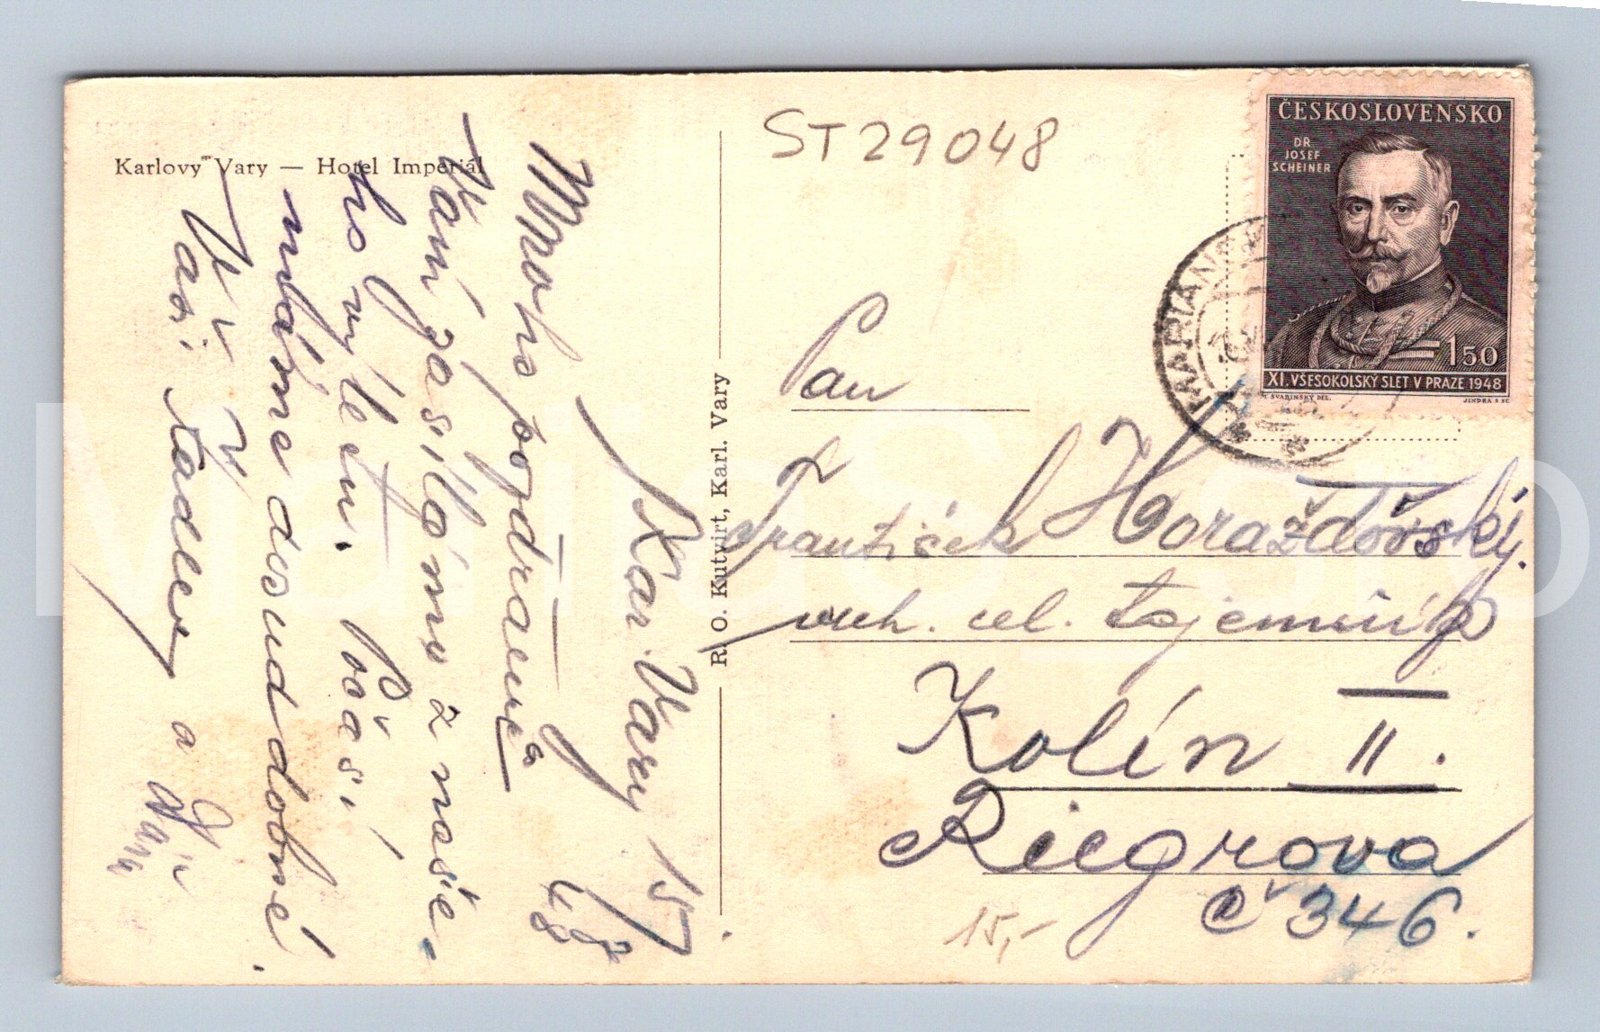 Karlovy Vary — Hotel Imperiál
ST29048
ČESKOSLOVENSKO
DR
JOSEF
SCHEINER
1.50
XI. VŠESOKOLSKÝ SLET V PRAZE 1948
M. ŠVABINSKÝ DEL.
JINDRA S SC.
MARIÁN
Kar. Vary 15/7
48
Mnoho pozdravů
Vám zasíláme z naše
ho výletu. Počasí
máme dosud dobré.
Vaši Vádlerovy a
R. O. Kutvirt, Karl. Vary
Pan
František Horažďovský.
vrch. cel. tajemník
Kolín II.
Riegrova
č 346.
15,-